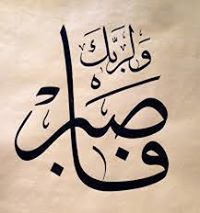 وَلِرَبِّكَ
فَاصْبِرْ